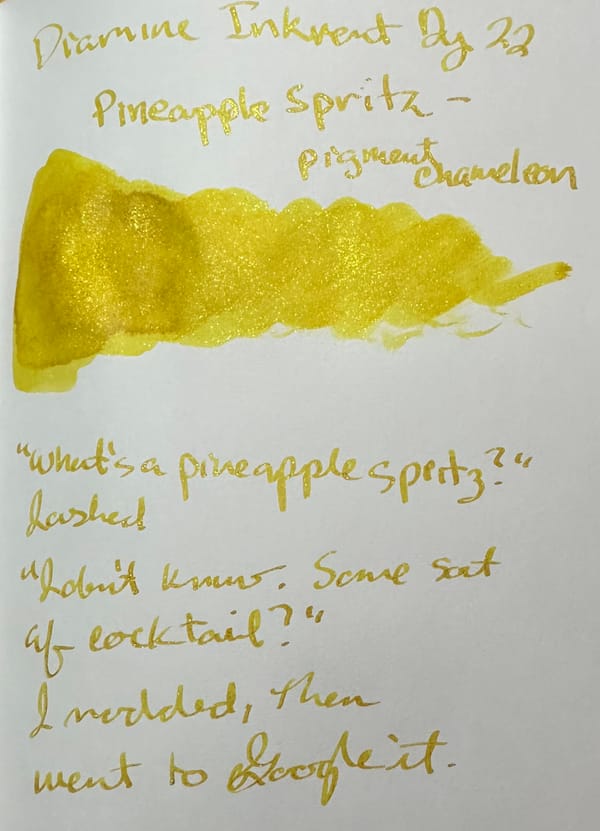 Diamine Inkvent Day 22
Pineapple Spritz -
pigment
chameleon
"What's a pineapple spritz?"
I asked
"I don't know. Some sort
of cocktail?"
I nodded, then
went to Google it.